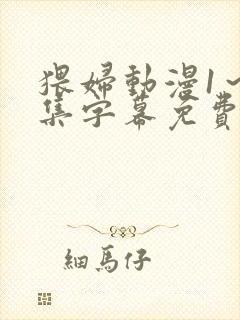 猥婦動漫1～
集字幕免費
細馬仔